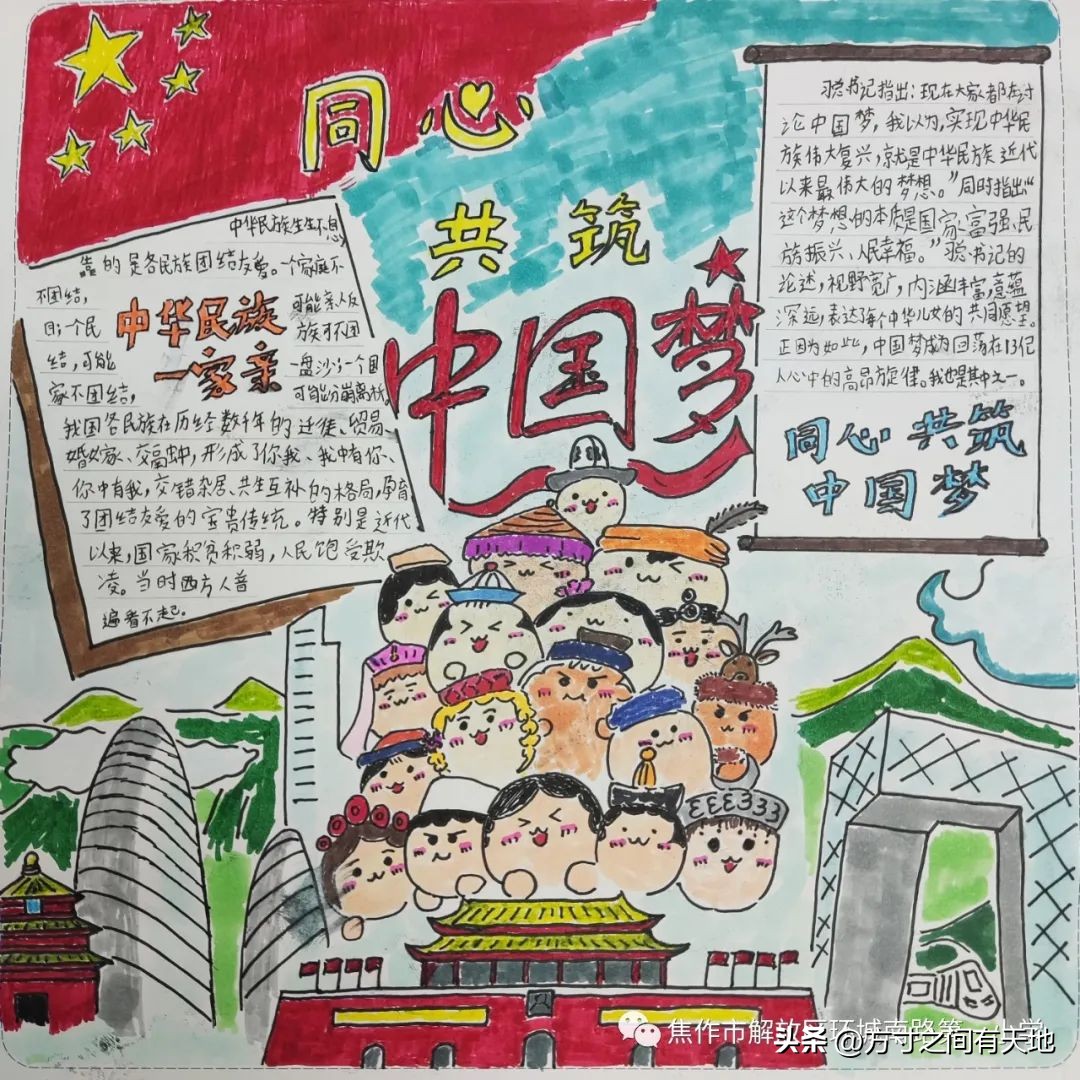 同心
共筑
中国梦
中华民族生生不息
靠的是各民族团结友爱。一个家庭不
不团结，
可能亲人反
目；一个民
族不团
结，可能
一盘沙；一个国
家不团结，
可能分崩离析。
中华民族
一家亲
我国各民族在历经数千年的迁徙、贸易、
婚嫁、交融中，形成了你我、我中有你、
你中有我，交错杂居、共生互补的格局，孕育
了团结友爱的宝贵传统。特别是近代
以来，国家积贫积弱，人民饱受欺
凌。当时西方人普
遍看不起。
书记指出：现在大家都在讨
论中国梦，我以为，实现中华民
族伟大复兴，就是中华民族近代
以来最伟大的梦想。”同时指出“
这个梦想的本质是国家富强、民
族振兴、人民幸福。”书记的
论述，视野宽广，内涵丰富，意蕴
深远，表达了每个中华儿女的共同愿望。
正因为如此，中国梦成为回荡在13亿
人心中的高昂旋律。我也是其中之一。
同心共筑
中国梦
焦作市解放区环城南路第一小学
头条 @方寸之间有天地